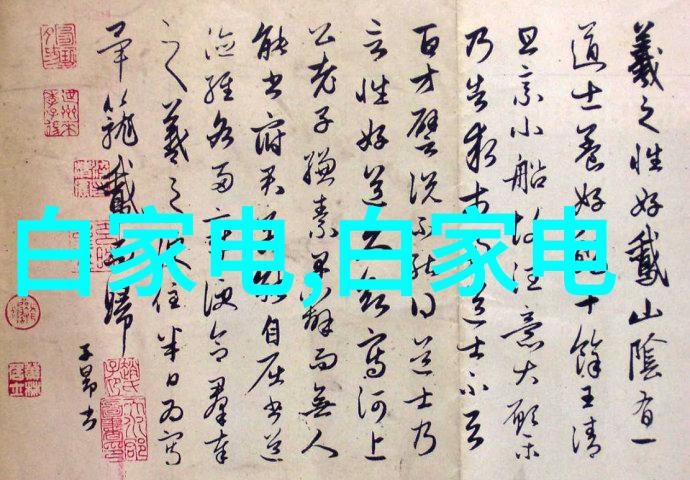 白家电,白家电
羲之性好鵞山陰有一
道士養好鵞十餘王清
旦乗小船故往意大願樂
乃告求市易道士不与
百方譬說不能得道士乃
言性好道久欲寫河上
公老子縑素早辦而無人
能書府君若能自屈書道
德經各兩章便合羣奉
之羲之便住半日為寫
畢籠鵞而歸
子昂書